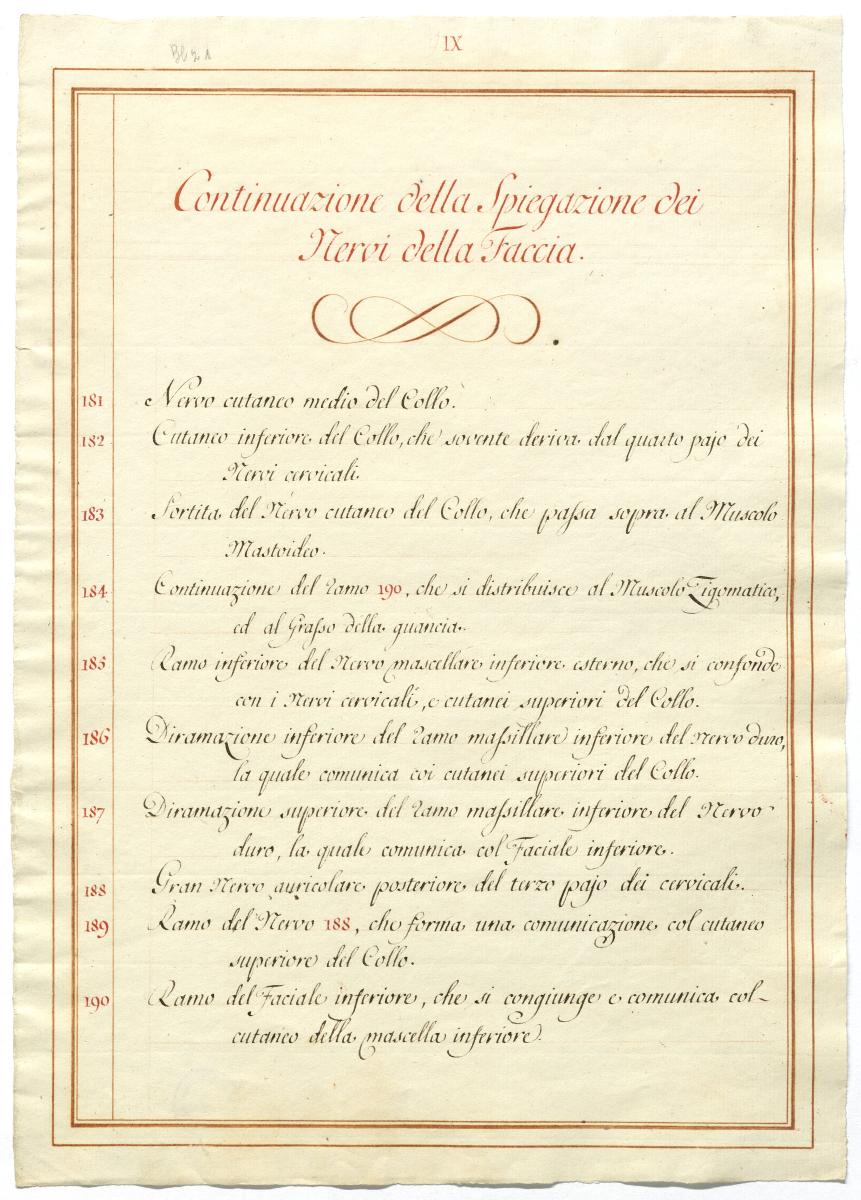 IX
Continuazione della Spiegazione dei
Nervi della Faccia.
181 Nervo cutaneo medio del Collo.
182 Cutaneo inferiore del Collo, che sovente deriva dal quarto pajo dei
Nervi cervicali.
183 Sortita del Nervo cutaneo del Collo, che paſsa sopra al Muscolo
Mastoideo.
184 Continuazione del Ramo 190, che si distribuisce al Muscolo Zigomatico,
ed al Graſso della guancia.
185 Ramo inferiore del Nervo mascellare inferiore esterno, che si confonde
con i Nervi cervicali, e cutanei superiori del Collo.
186 Diramazione inferiore del Ramo maſsillare inferiore del Nervo duro,
la quale comunica coi cutanei superiori del Collo.
187 Diramazione superiore del Ramo maſsillare inferiore del Nervo
duro, la quale comunica col Faciale inferiore.
188 Gran Nervo auricolare posteriore del terzo pajo dei cervicali.
189 Ramo del Nervo 188, che forma una comunicazione col cutaneo
superiore del Collo.
190 Ramo del Faciale inferiore, che si congiunge e comunica col
cutaneo della mascella inferiore.